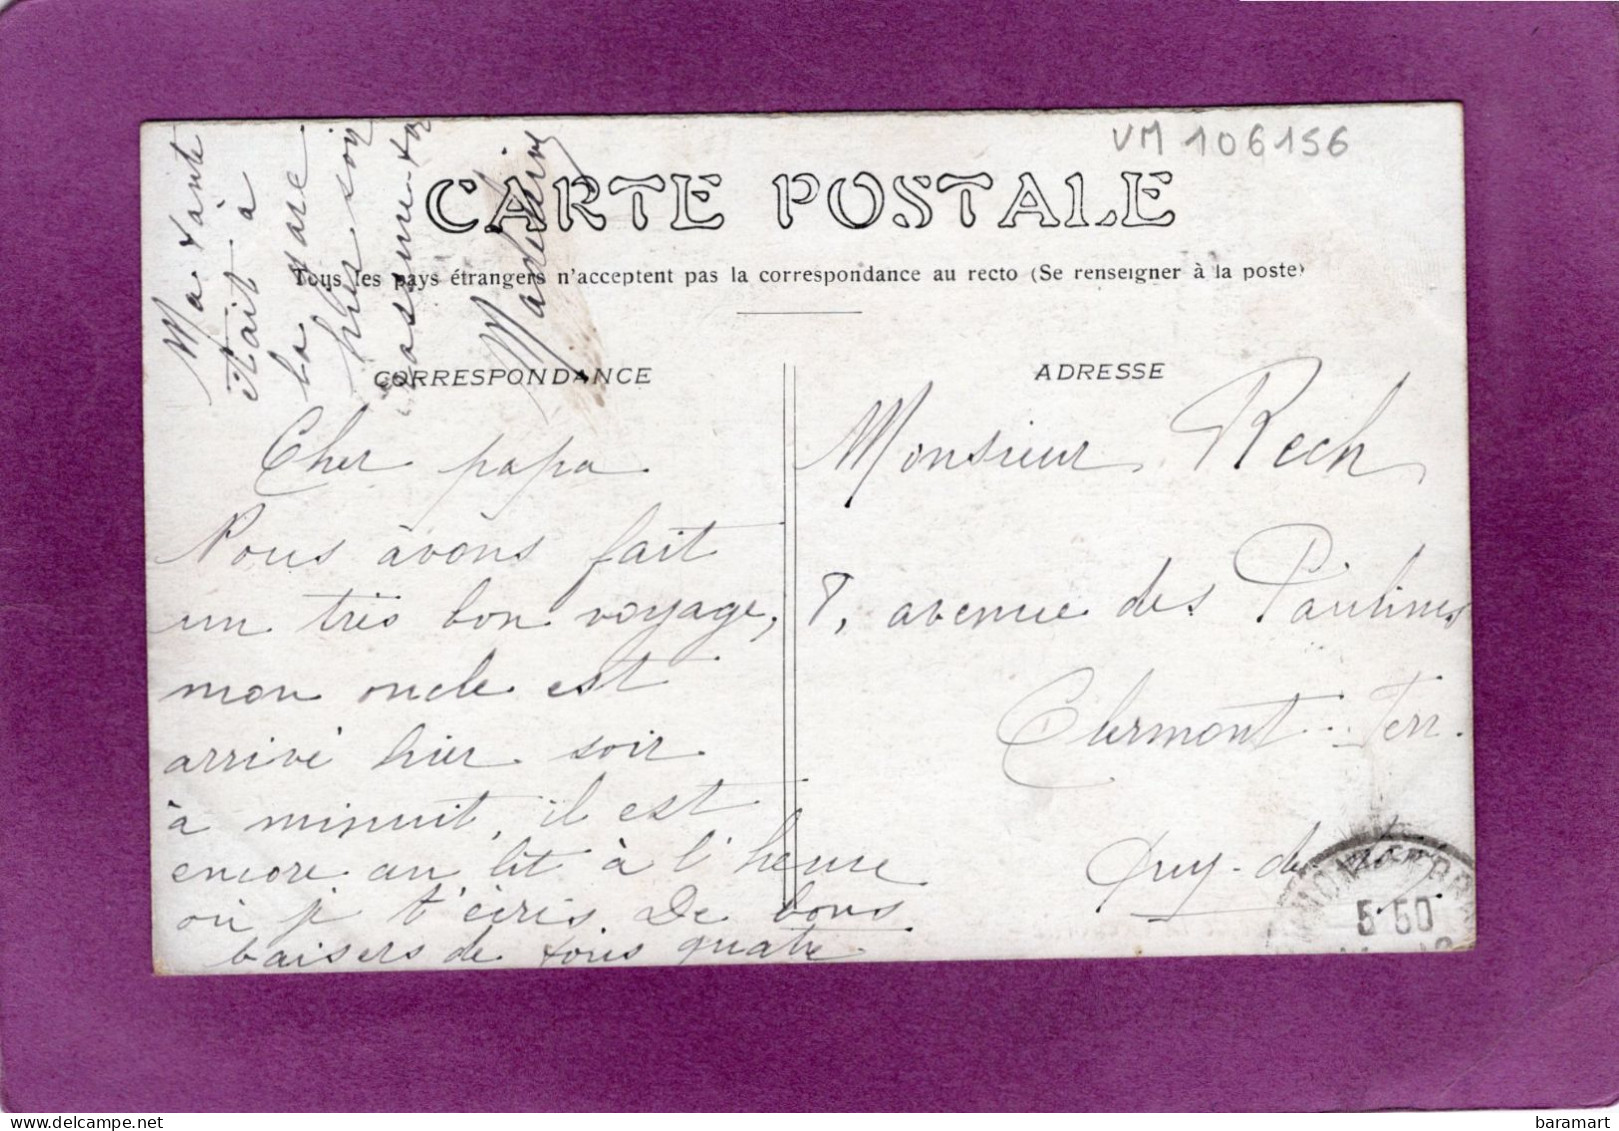 VM 106156
CARTE POSTALE
Tous les pays étrangers n'acceptent pas la correspondance au recto (Se renseigner à la poste)
CORRESPONDANCE
Cher papa
Nous avons fait
un très bon voyage,
mon oncle est
arrivé hier soir
à minuit, il est
encore au lit à l'heure
où je t'écris De bons
baisers de tous quatre
Ma tante
était à
la gare
hier soir
Madeleine
ADRESSE
Monsieur Rech
8, avenue des Paulines
Clermont-Ferr.
Puy-de-
5 50
baramart